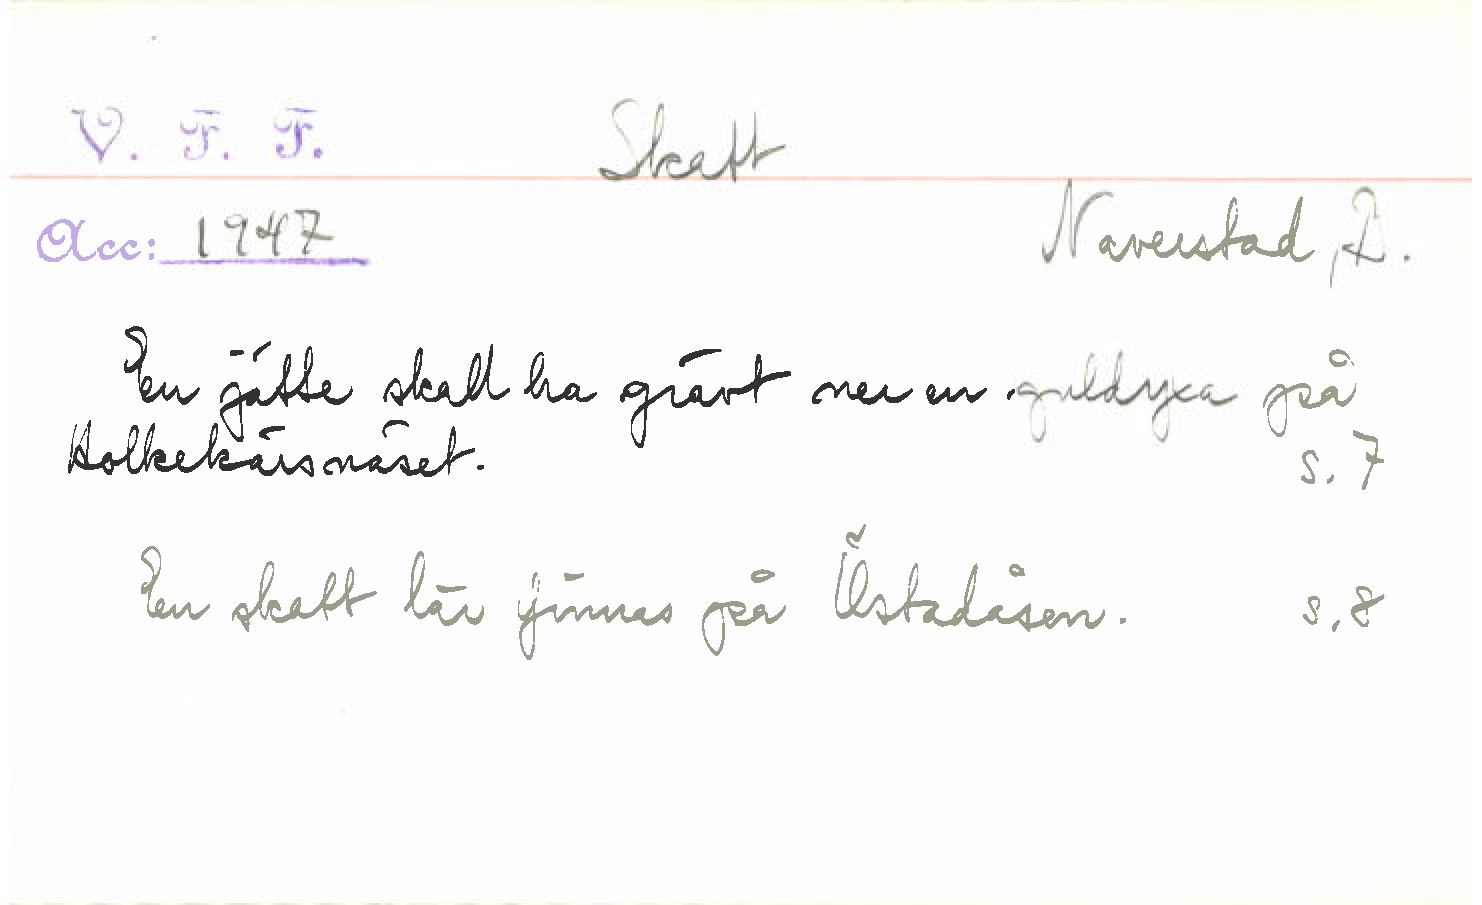 V. F. F.
Skatt
Acc: 1947
Naverstad, D.
En jätte skall ha grävt ner en guldyxa på
Holkekärsnäset.
s. 7
En skatt lär finnas på Östadåsen. s. 8